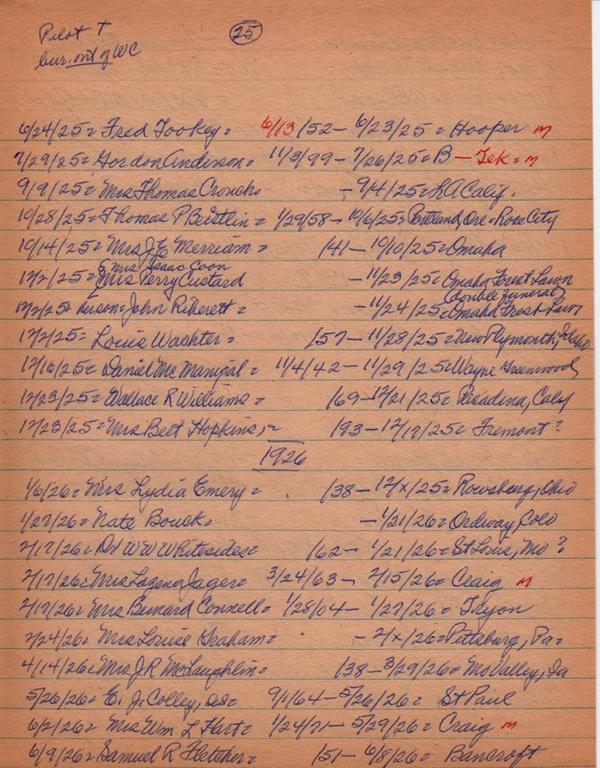 Pilot T
bur. out of WC
25
6/24/25 = Fred Tookey = 6/13/52 – 6/23/25 = Hooper m
7/29/25 = Gordon Anderson = 11/3/99 – 7/26/25 = B – Tek = m
9/9/25 = Mrs Thomas Crouch = – 9/4/25 = LA Calif.
10/28/25 = Thomas P Beistlin = 1/29/58 – 10/6/25 = Portland, Ore = Rose City
10/14/25 = Mrs J E Merriam = /41 – 10/10/25 = Omaha
& Mrs Isaac Coon
12/2/25 = Mrs Perry Custard – 11/23/25 = Omaha Forest Lawn
(double funeral)
12/2/25 = person = John Rikerett = – 11/24/25 = Omaha Forest Lawn
12/2/25 = Louis Wachter = /57 – 11/28/25 = New Plymouth, Idaho
12/16/25 = Daniel McManigal = 11/4/42 – 11/29/25 = Wayne Greenwood
12/23/25 = Wallace R Williams = /69 – 12/21/25 = Pasadena, Calif
12/23/25 = Mrs Bert Hopkins, = /93 – 12/19/25 = Fremont?
1926
1/6/26 = Mrs Lydia Emery = /38 – 12/x/25 = Rowsburg, Ohio
1/27/26 = Nate Bouck = – 1/21/26 = Ordway, Colo
2/17/26 = Dr W W Whitesides = /62 – 1/21/26 = St Louis, Mo?
2/17/26 = Mrs Jager = 3/24/63 – 2/15/26 = Craig m
2/17/26 = Mrs Bernard Connell = 1/28/04 – 1/27/26 = Tryon
2/24/26 = Mrs Louise Graham = – 2/x/26 = Pittsburg, Pa =
4/14/26 = Mrs J R McLaughlin = /38 – 3/29/26 = Mo Valley, Ia
5/26/26 = E. J. Colley, = 9/1/64 – 5/26/26 = St Paul
6/2/26 = Mrs Wm L Hart = 1/24/71 – 5/29/26 = Craig m
6/9/26 = Samuel R Fletcher = /51 – 6/8/26 = Bancroft